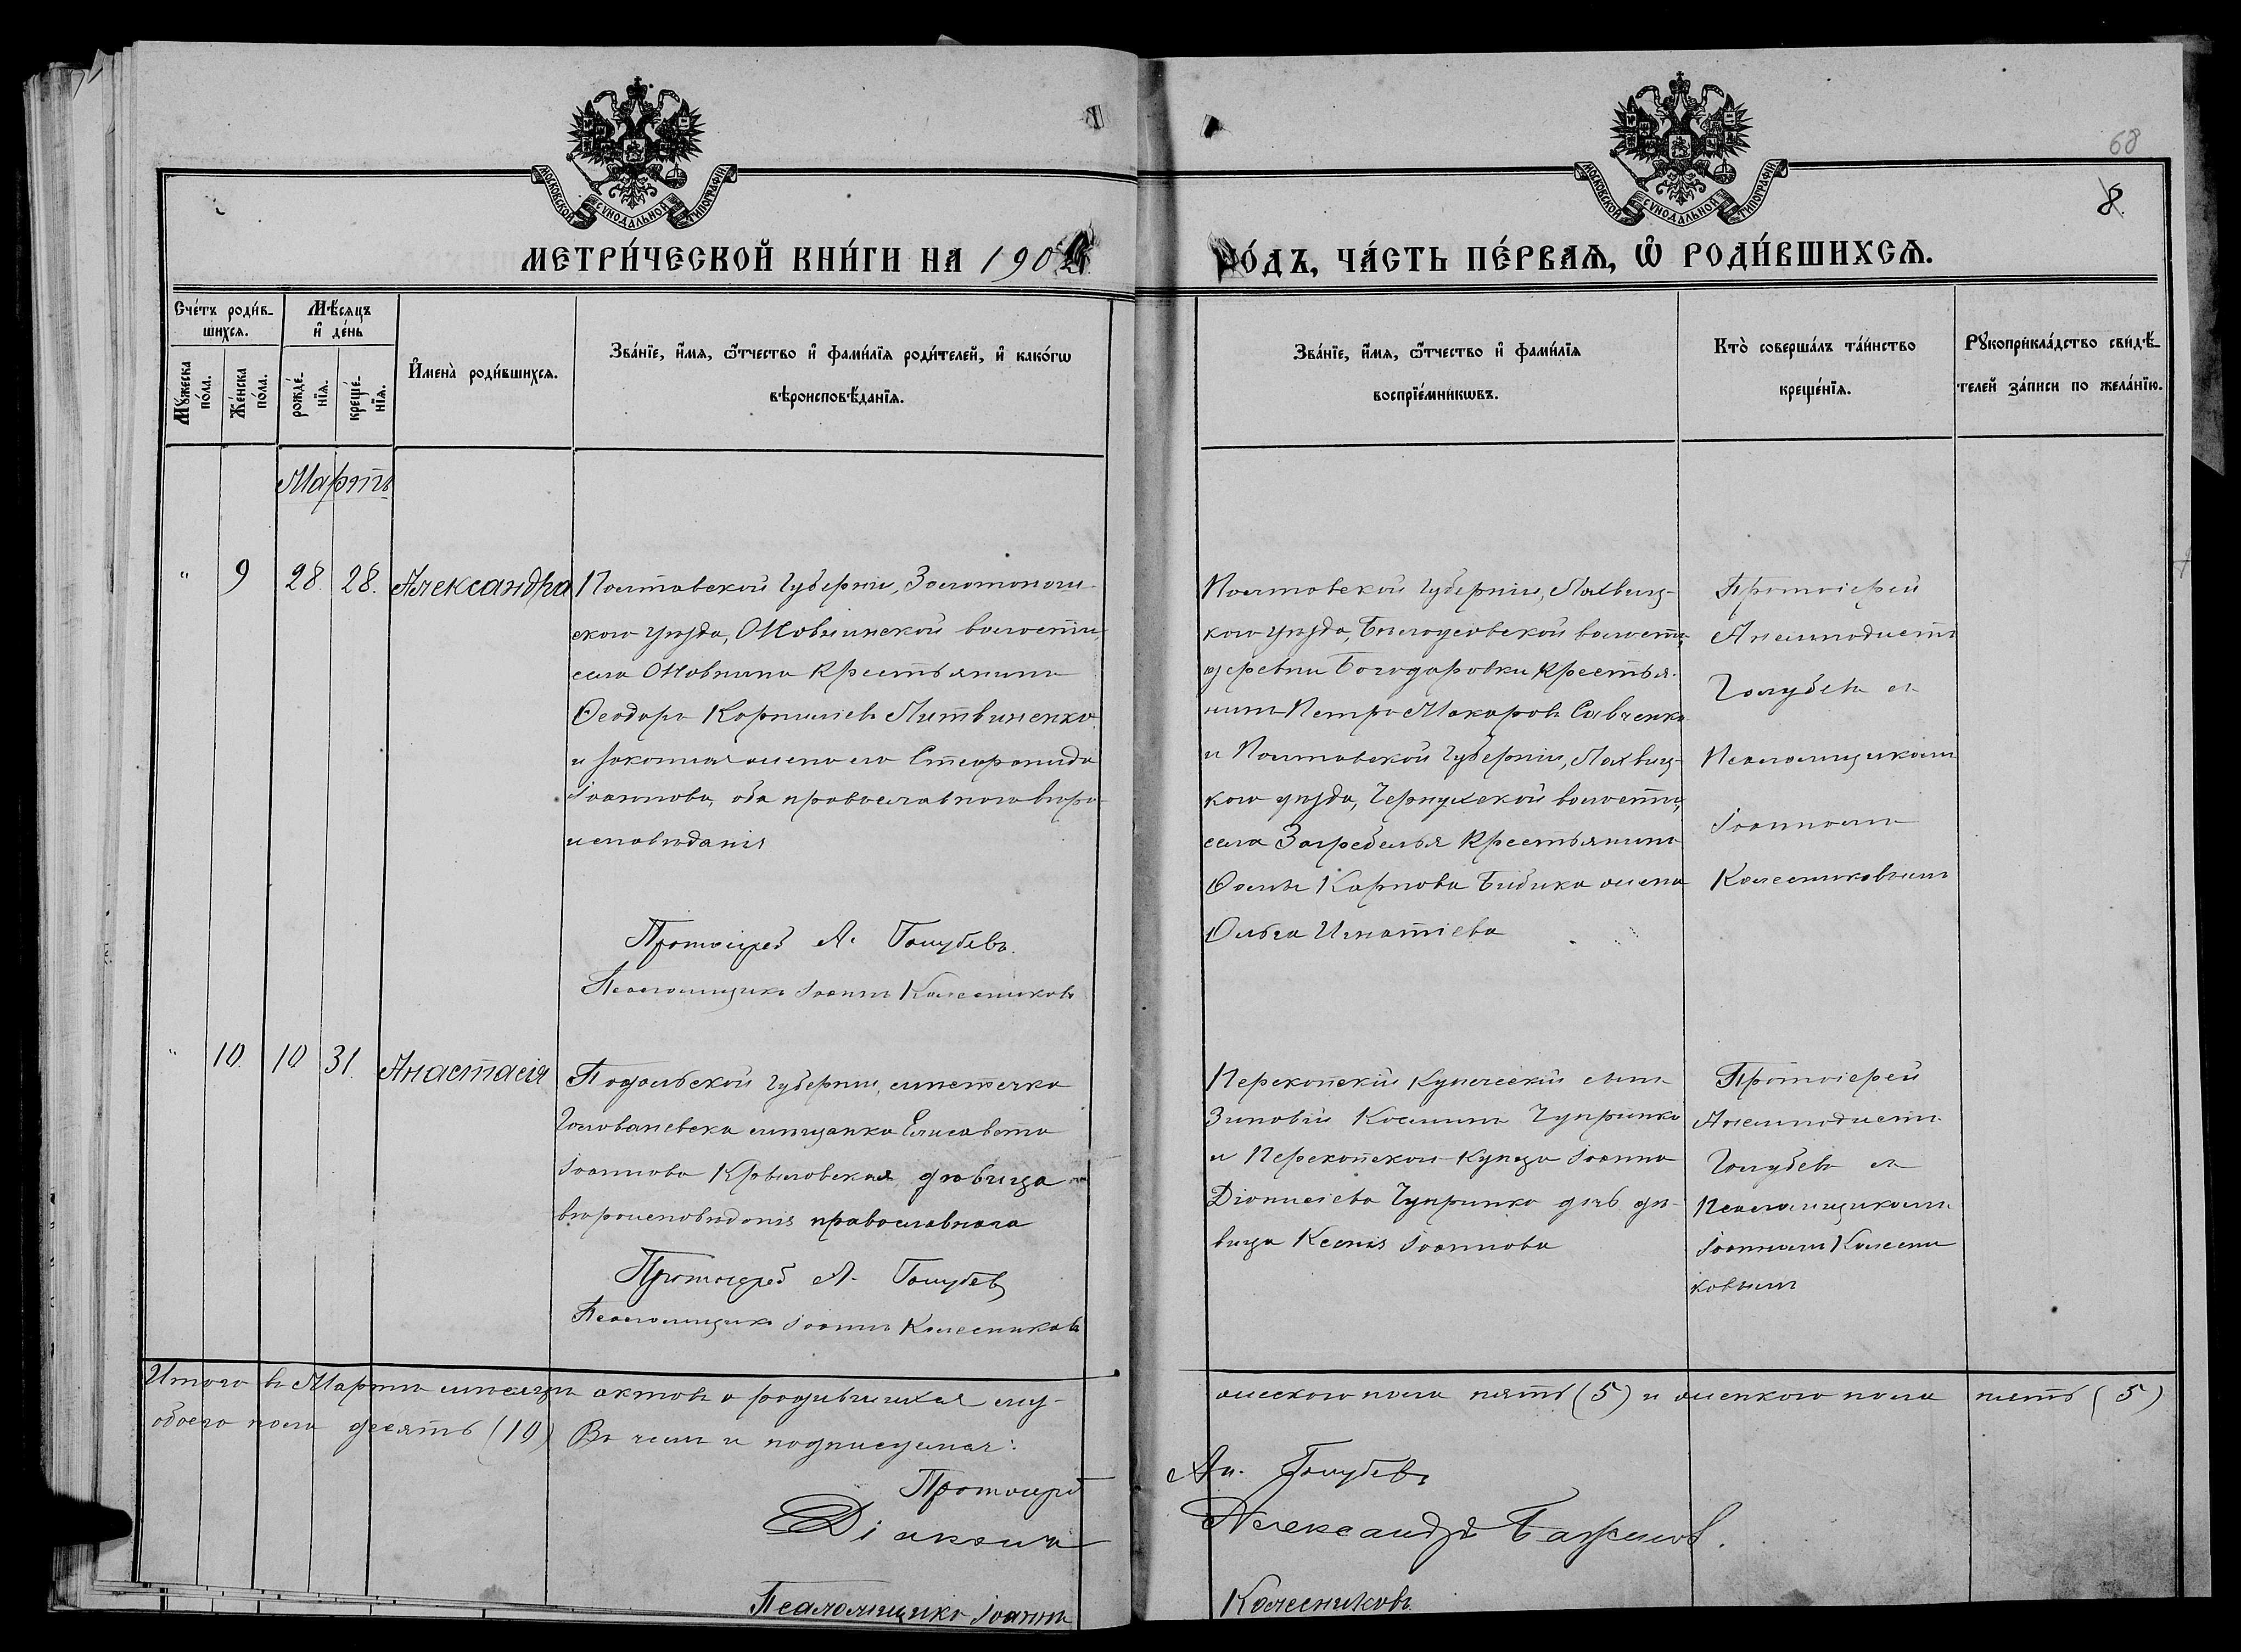 68
8.
МОСКОВСКОЙ СѴНОДАЛЬНОЙ ТИПОГРАФІИ
МОСКОВСКОЙ СѴНОДАЛЬНОЙ ТИПОГРАФІИ
МЕТРИ́ЧЕСКОЙ КНИ́ГИ НА 190
ГО́ДЪ, ЧА́СТЬ ПЕ́РВАѦ, Ѿ РОДИ́ВШИХСѦ.
Сче́тъ роди́в-
шихсѧ.
Мѣ́сѧцъ
и҆ де́нь
Мꙋ́жеска
по́ла.
Же́нска
по́ла.
рожде́-
нїѧ.
креще́-
нїѧ.
И҆мена̀ роди́вшихсѧ.
Зва́нїе, и҆́мѧ, ѻ҆́тчество и҆ фами́лїѧ роди́телей, и҆ како́гѡ
вѣроисповѣ́данїѧ.
Зва́нїе, и҆́мѧ, ѻ҆́тчество и҆ фами́лїѧ
воспрїе́мникѡвъ.
Кто̀ соверша́лъ та́инство
креще́нїѧ.
Рꙋкоприкла́дство свидѣ́-
телей за́писи по жела́нїю.
Мартъ
" 9 28. 28. Александра
Полтавской губерніи, Золотонош-
скаго уѣзда, волости,
села крестьянинъ
Ѳеодоръ Корниліевъ Литвиненко
и законная жена его
Іоаннова, оба православнаго вѣро-
исповѣданія
Протоіерей А. Голубевъ.
Псаломщикъ Іоаннъ Колесниковъ
Полтавской губерніи, Лохвиц-
каго уѣзда, Бѣлоусовской волости,
деревни Богодаровки крестья-
нинъ Петръ Макаровъ Савченко
и Полтавской губерніи, Лохвиц-
каго уѣзда, Чернухской волости,
села Загребелья крестьянина
Ѳомы Карпова Бибика жена
Ольга Игнатіева
Протоіерей
Анемподистъ
Голубевъ съ
Псаломщикомъ
Іоанномъ
Колесниковымъ
" 10. 10 31. Анастасія
Подольской губерніи, мѣстечка
Голованевска мѣщанка Елисавета
Іоаннова Крыловская дѣвица
вѣроисповѣданія православнаго
Протоіерей А. Голубевъ
Псаломщикъ Іоаннъ Колесниковъ
Перекопскій купеческій сынъ
Зиновій Косминъ Чупринко
и Перекопскаго купца Іоанна
Діонисіева Чупринко дочь дѣ-
вица Ксенія Іоаннова
Протоіерей
Анемподистъ
Голубевъ съ
Псаломщикомъ
Іоанномъ Колесни
ковымъ
Итого въ Мартѣ мѣсяцѣ актовъ о родившихся му-
жескаго пола пять (5) и женскаго пола пять (5)
обоего пола десять (10) Въ чемъ и подписуемся:
Протоіерей Ан. Голубевъ
Діаконъ Александръ Баженов.
Псаломщикъ Іоаннъ Колесниковъ